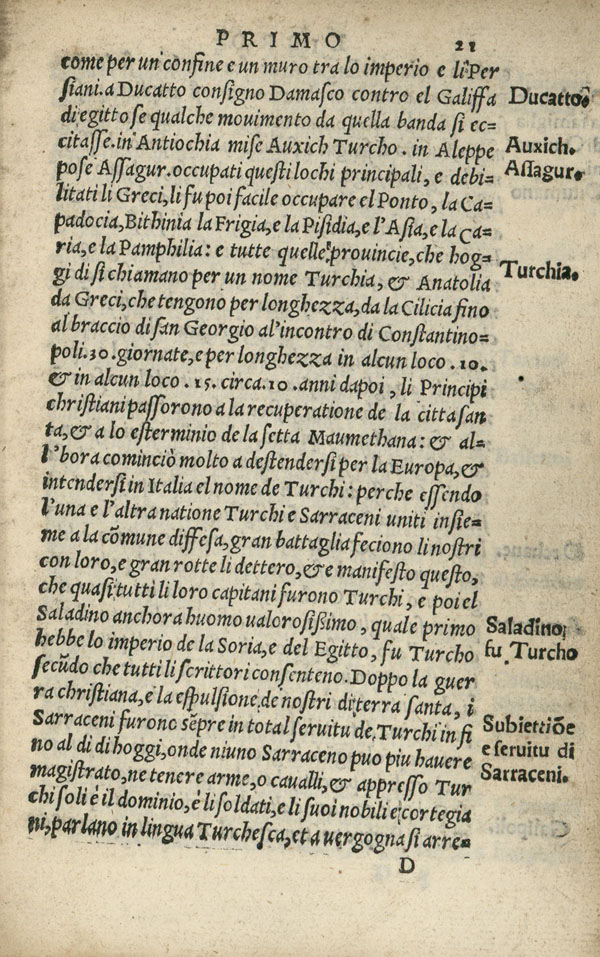 PRIMO 21
come per un' confine e un muro tra lo imperio e li Per
siani. a Ducatto consigno Damasco contro el Galiffa
Ducatto.
di egitto se qualche mouimento da quella banda si ec=
citasse. in Antiochia mise Auxich Turcho. in Aleppe
Auxich.
pose Assagur. occupati questi lochi principali, e debi=
Assagur.
litati li Greci, li fu poi facile occupare el Ponto, la Ca
padocia, Bithinia la Frigia, e la Pisidia, e l'Asia, e la Ca=
ria, e la Pamphilia: e tutte quelle prouincie, che hog=
gi di si chiamano per un nome Turchia, & Anatolia
Turchia.
da Greci, che tengono per longhezza, da la Cilicia fino
al braccio di san Georgio al'incontro di Constantino=
poli. 30. giornate, e per longhezza in alcun loco . 10.
& in alcun loco . 15. circa. 10. anni dapoi, li Principi
christiani passorono a la recuperatione de la citta san
ta, & a lo esterminio de la setta Maumethana: & al=
l'hora cominciò molto a destendersi per la Europa, &
intendersi in Italia el nome de Turchi: perche essendo
l'una e l'altra natione Turchi e Sarraceni uniti insie=
me a la cōmune diffesa, gran battaglia feciono li nostri
con loro, e gran rotte li dettero, & e manifesto questo,
che quasi tutti li loro capitani furono Turchi, e poi el
Saladino anchora huomo ualorosissimo, quale primo
Saladino,
hebbe lo imperio de la Soria, e del Egitto, fu Turcho
fu Turcho
secūdo che tutti li scrittori consenteno. Doppo la guer
ra christiana, e la espulsione de nostri di terra santa, i
Sarraceni furono sēpre in total seruitu de Turchi in fi
Subiettiōe
no al di di hoggi, onde niuno Sarraceno puo piu hauere
e seruitu di
magistrato, ne tenere arme, o caualli, & appresso Tur
Sarraceni.
chi soli è il dominio, e li soldati, e li suoi nobili e cortegia
ni, parlano in lingua Turchesca, et a uergogna si arre=
D